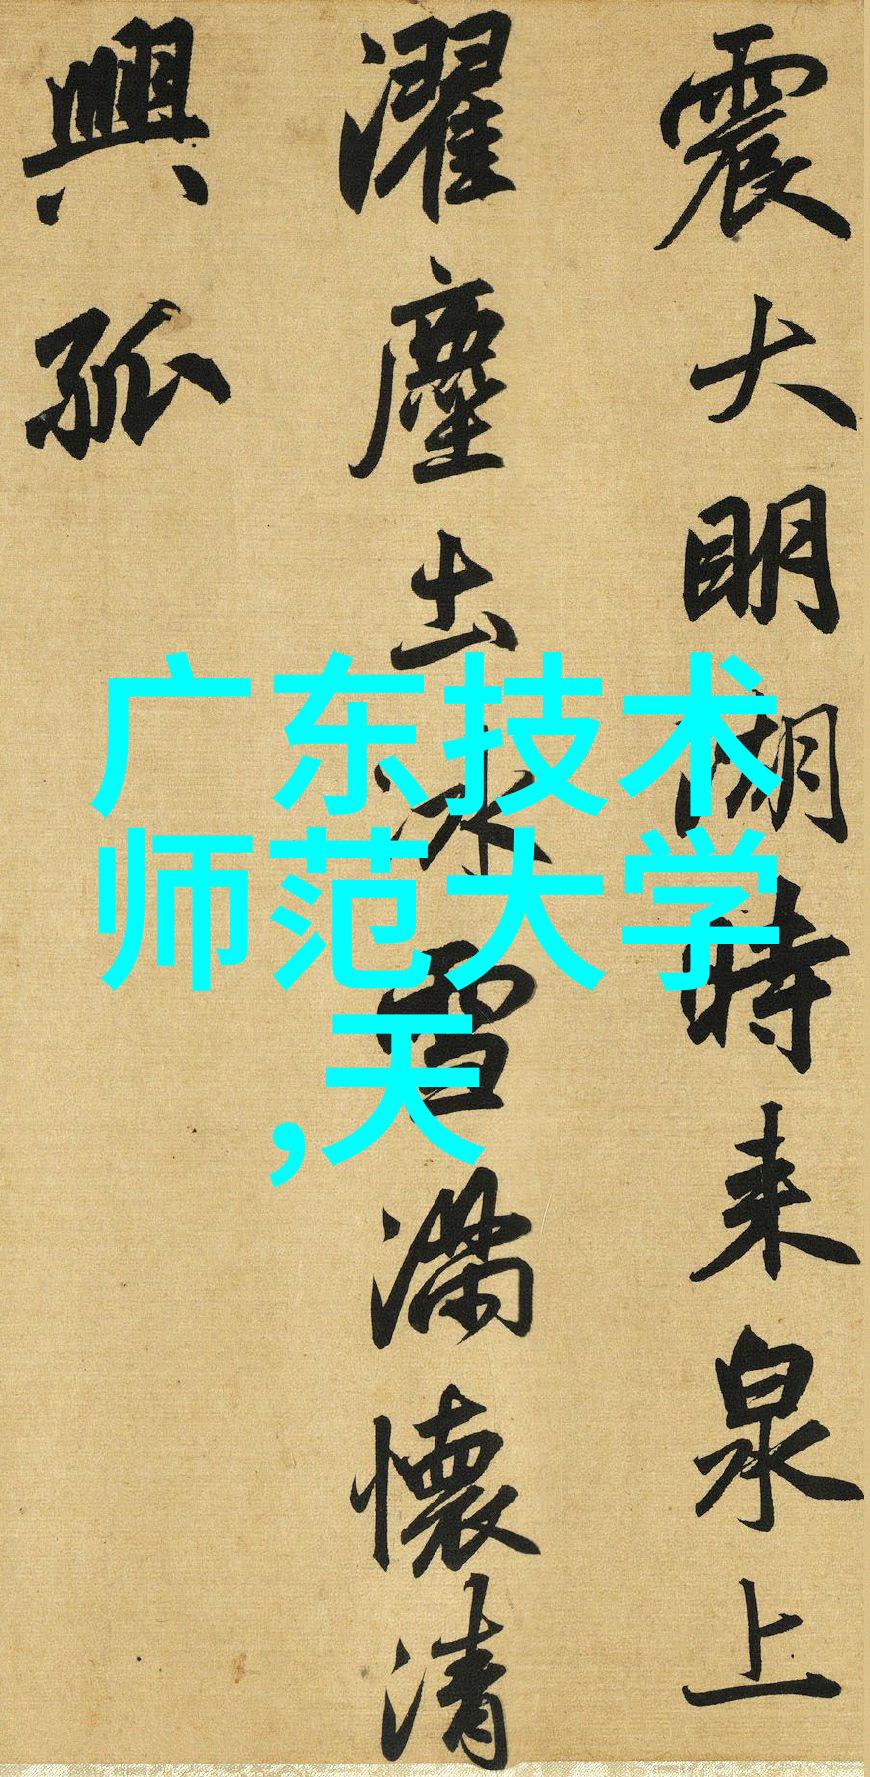 震大明湖時来泉上
濯塵土冰雪滿懷清
興孤
广东技术
师范大学
,天